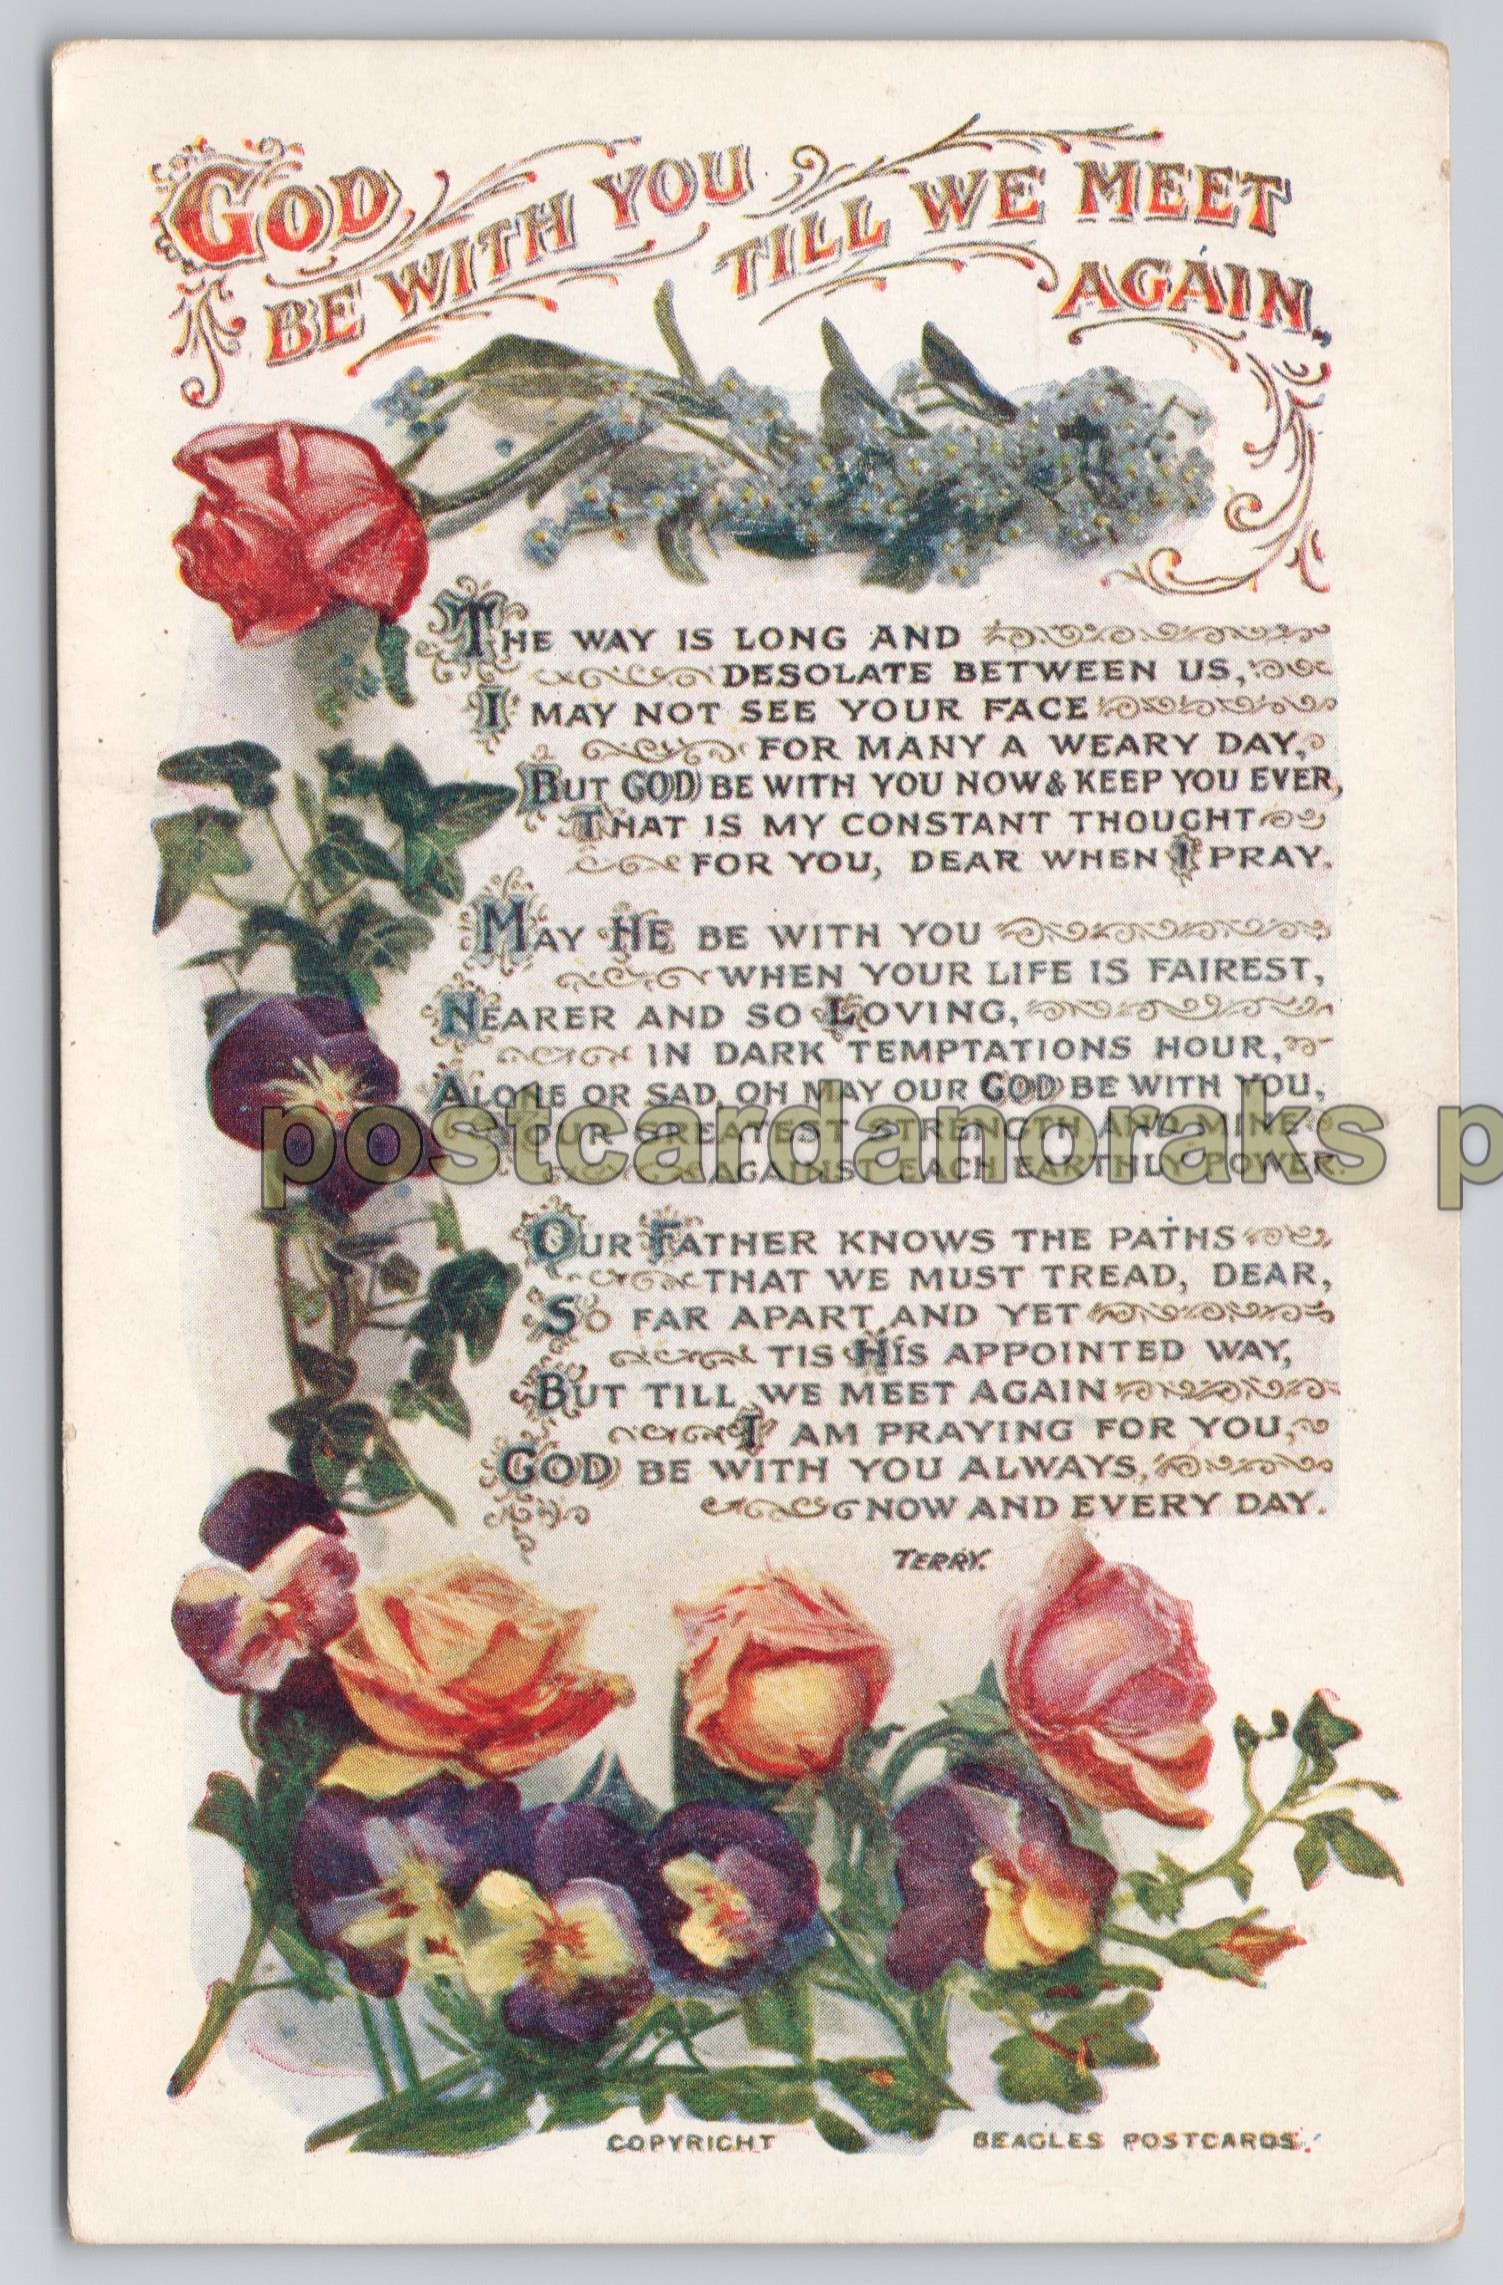 GOD
BE WITH YOU
TILL WE MEET
AGAIN.
THE WAY IS LONG AND
DESOLATE BETWEEN US,
I MAY NOT SEE YOUR FACE
FOR MANY A WEARY DAY,
BUT GOD BE WITH YOU NOW & KEEP YOU EVER,
THAT IS MY CONSTANT THOUGHT
FOR YOU, DEAR WHEN I PRAY.
MAY HE BE WITH YOU
WHEN YOUR LIFE IS FAIREST,
NEARER AND SO LOVING,
IN DARK TEMPTATIONS HOUR,
ALONE OR SAD, OH MAY OUR GOD BE WITH YOU,
YOUR GREATEST STRENGTH AND MINE
AGAINST EACH EARTHLY POWER.
OUR FATHER KNOWS THE PATHS
THAT WE MUST TREAD, DEAR,
SO FAR APART, AND YET
TIS HIS APPOINTED WAY,
BUT TILL WE MEET AGAIN
I AM PRAYING FOR YOU,
GOD BE WITH YOU ALWAYS,
NOW AND EVERY DAY.
TERRY.
COPYRIGHT BEAGLES POSTCARDS.
postcardanoraks p